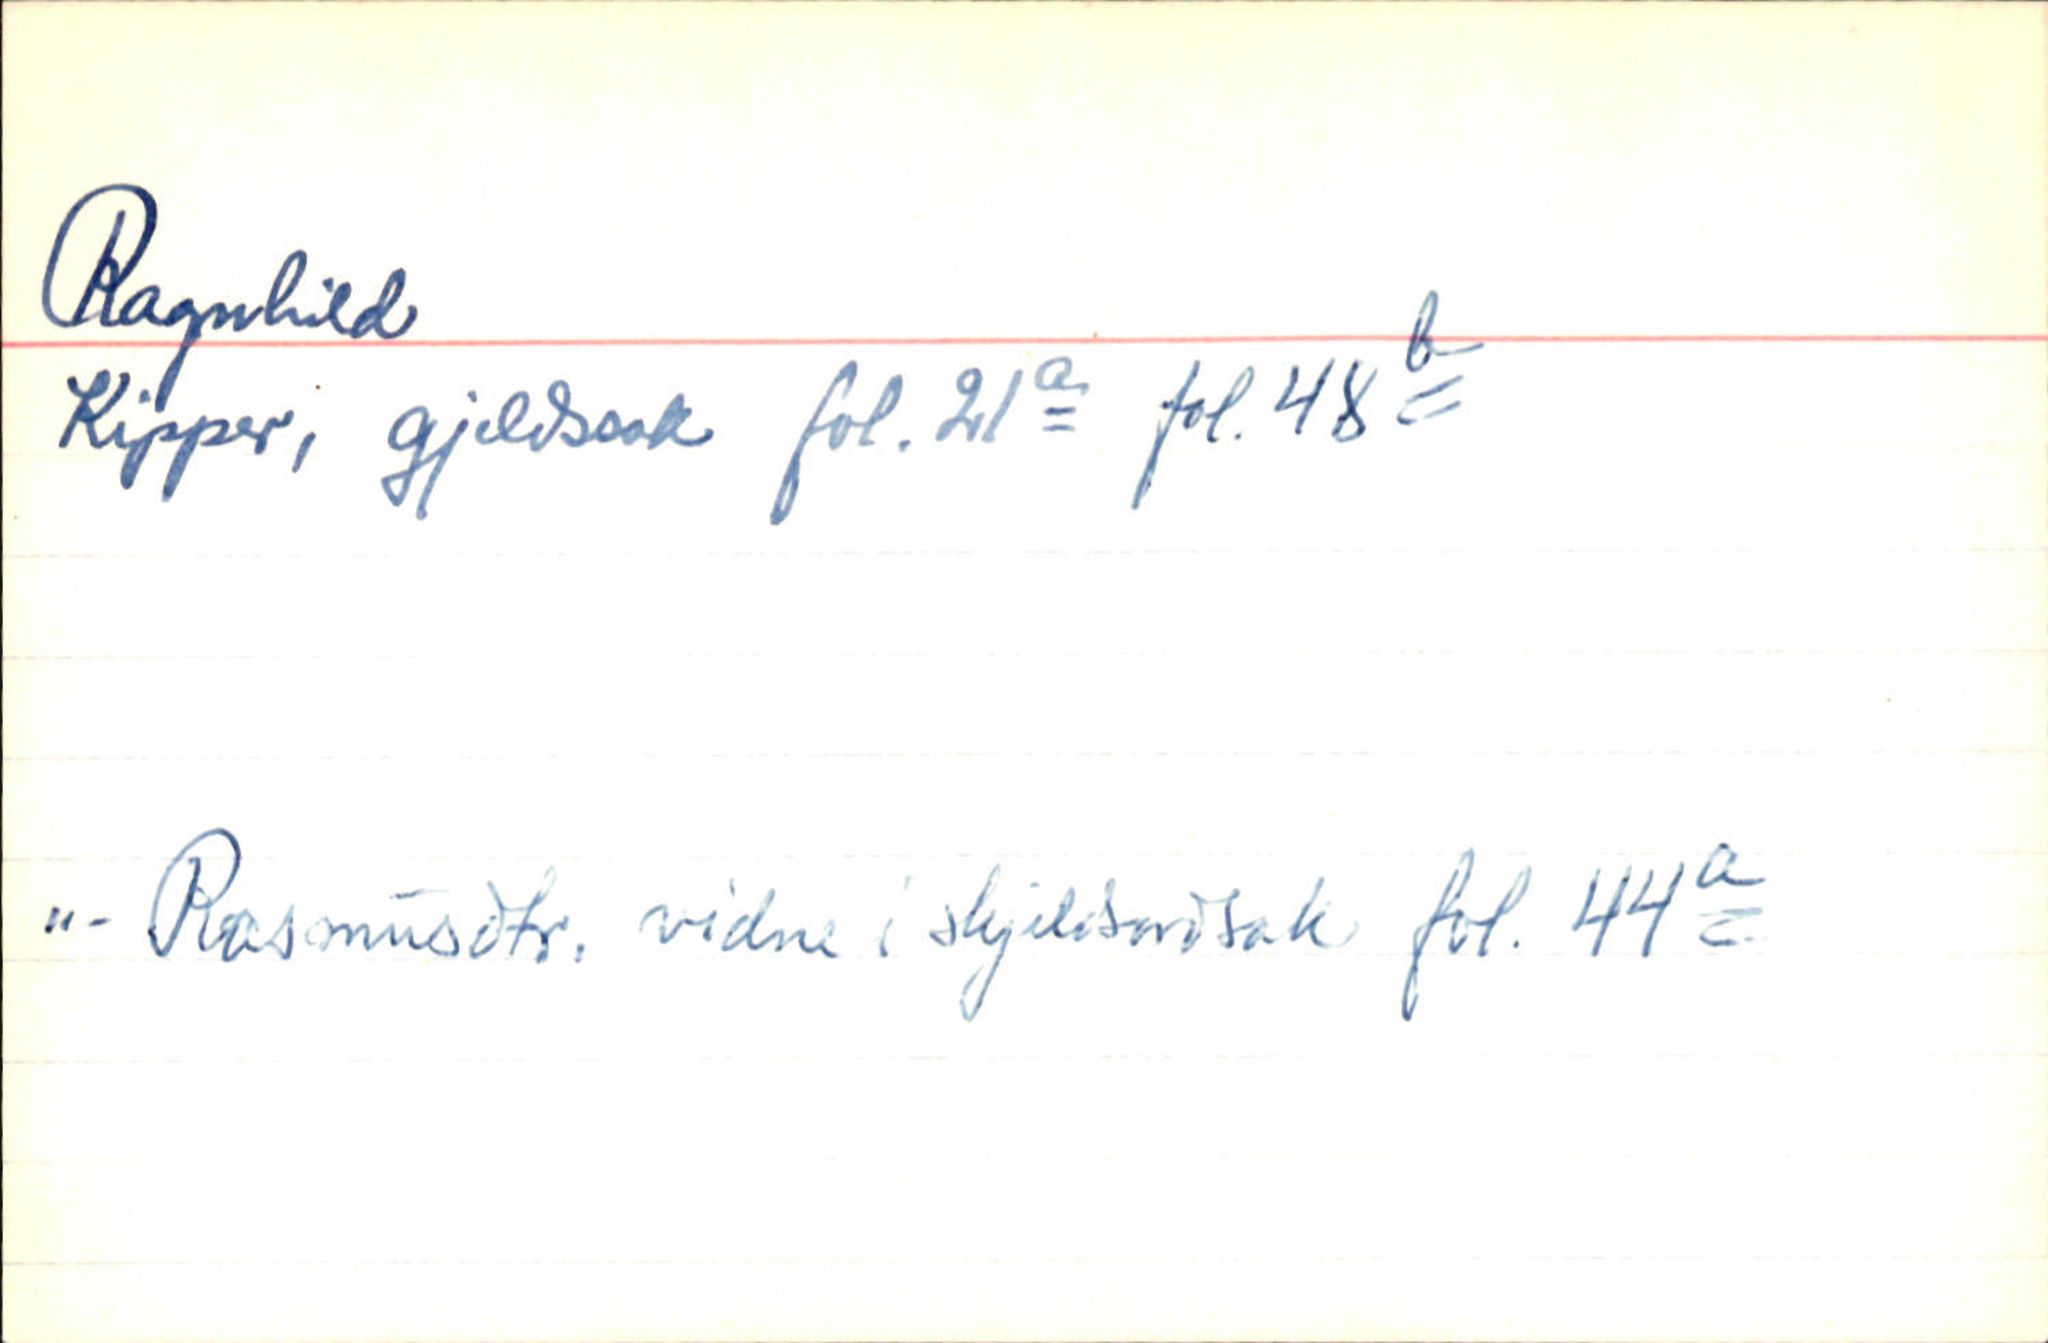 Ragnhild
Kipper, gjeldssak fol. 21a fol. 48b
"- Rasmusdtr. vidne i skjeldsordsak fol. 44a